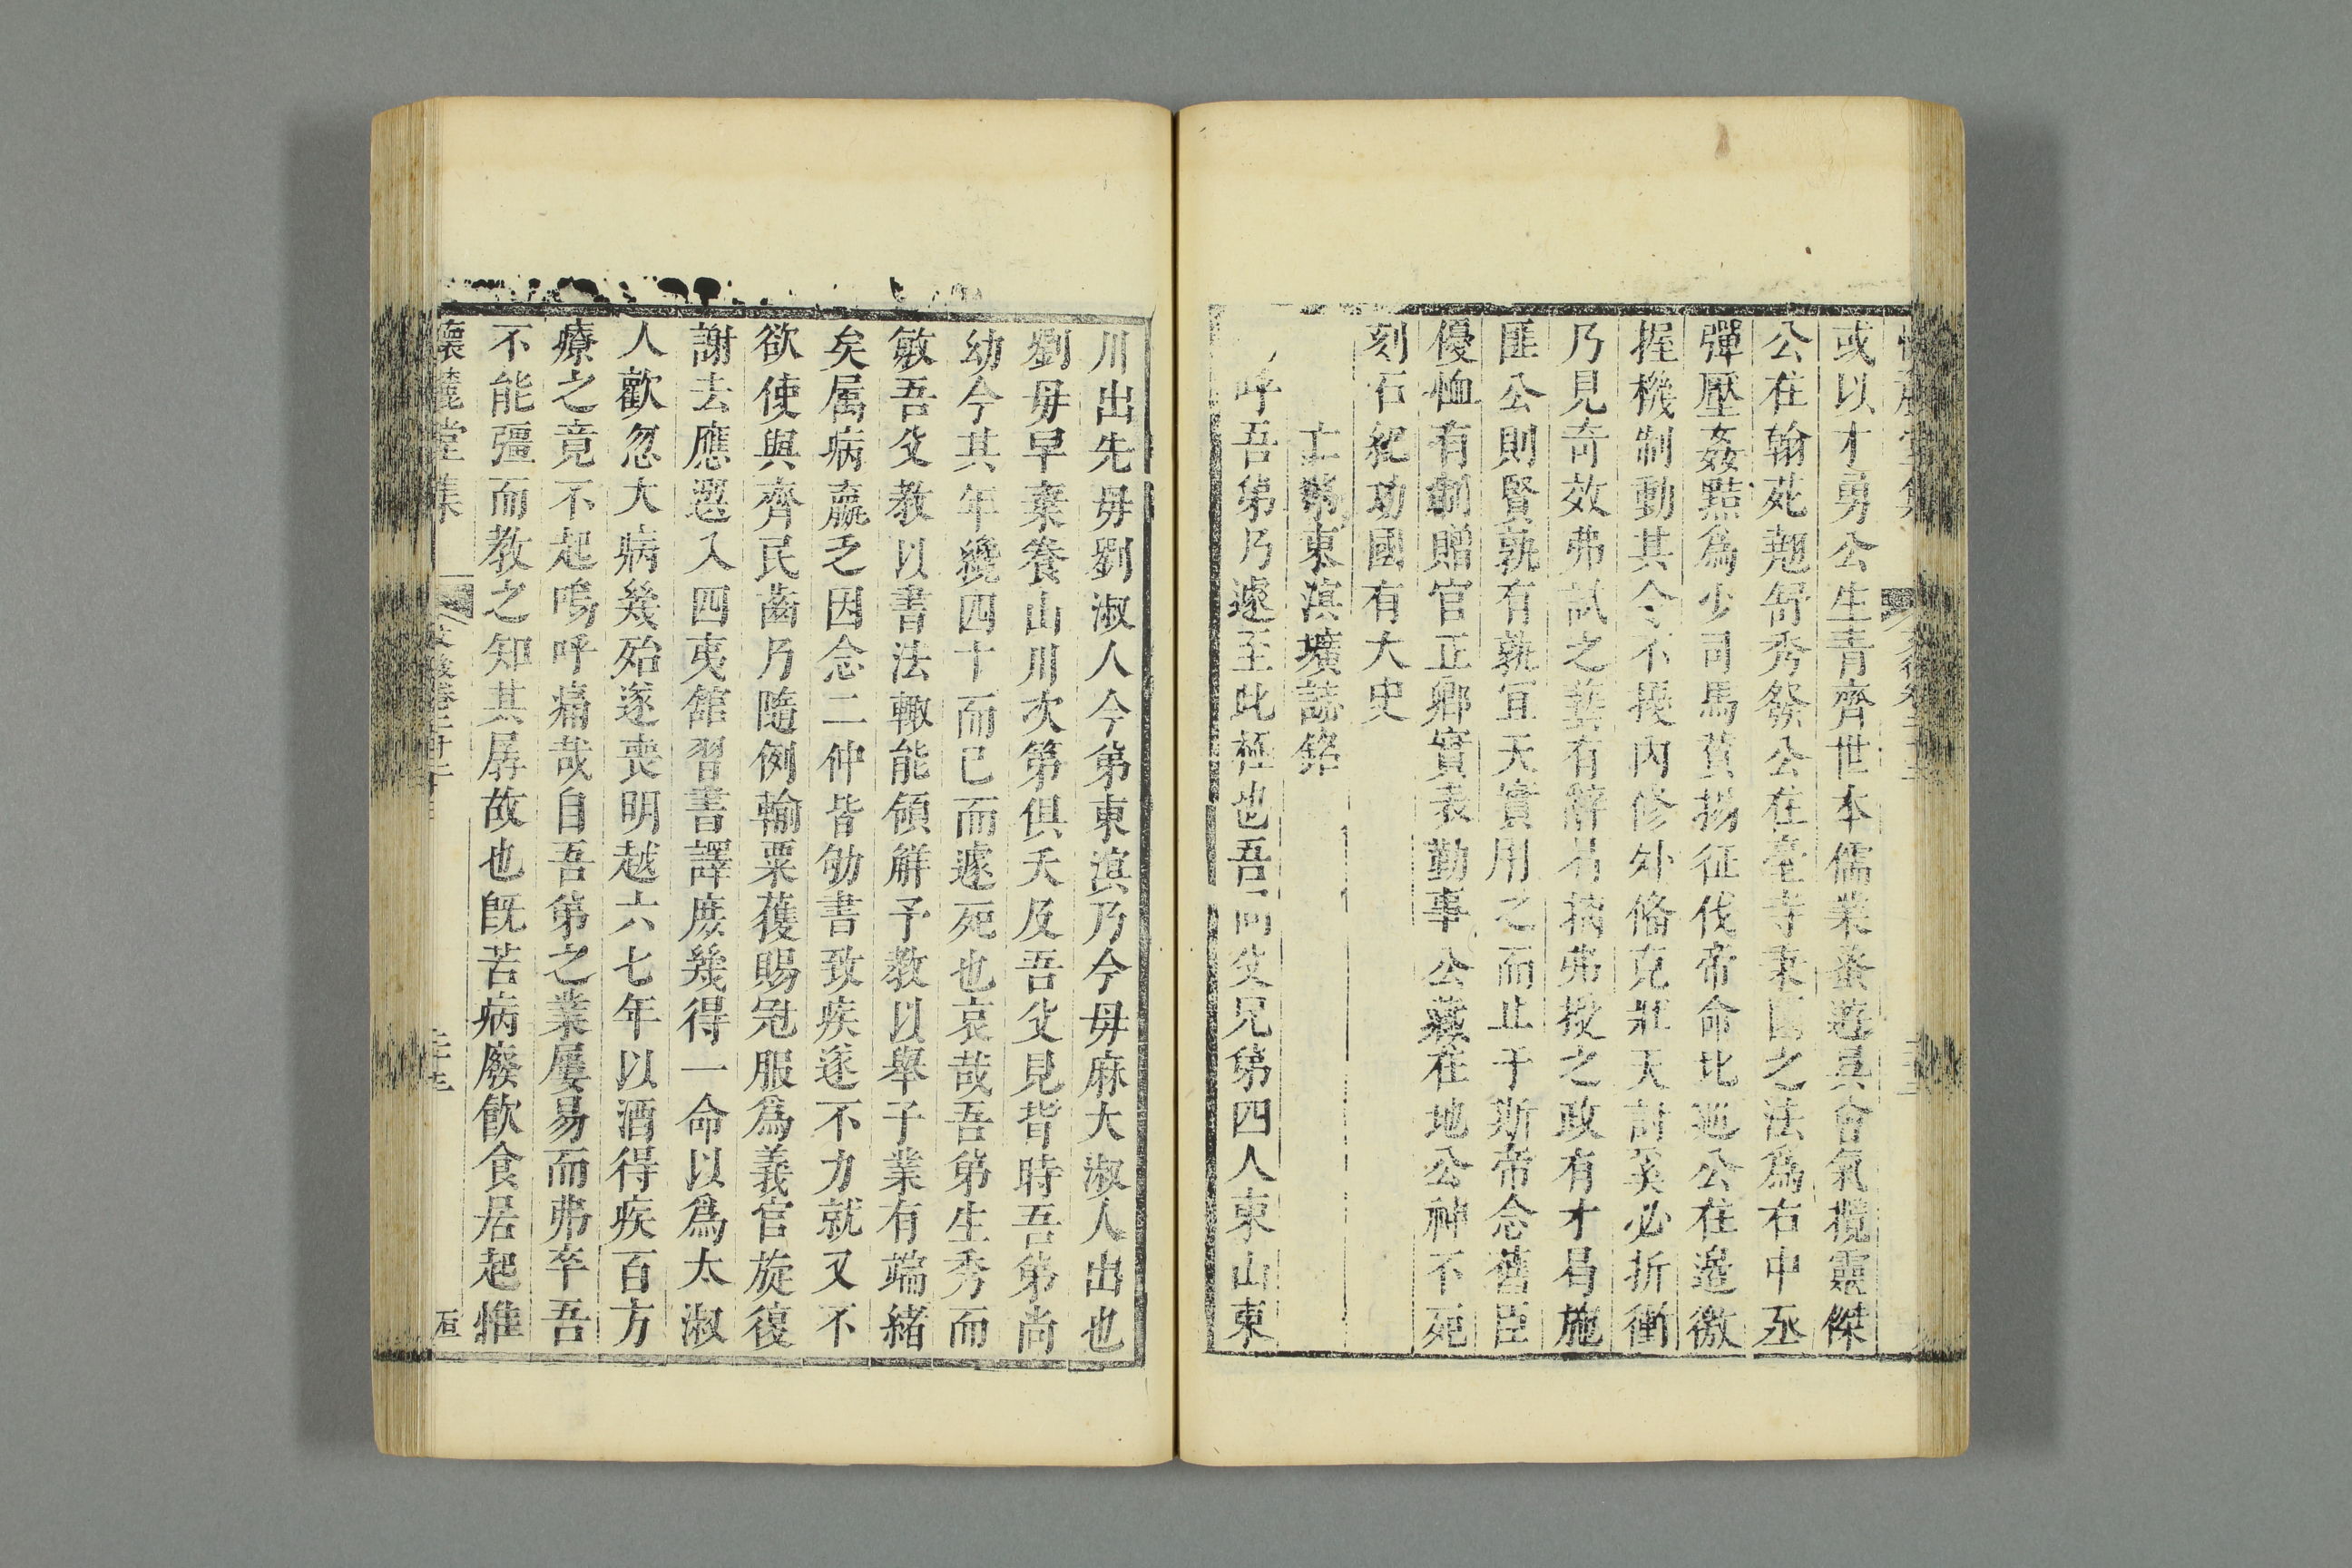 或以才勇公生青齊世本儒業蚤遊具會氣攬靈傑
公在翰苑翹舒秀發公在臺寺秉國之法爲右中丞
彈壓姦黠爲少司馬賛揚征伐帝命北廵公在邉徼
握機制動其令不擾內修外脩克壯天討奚必折衝
乃見奇效弗試之業有辭若擒弗授之政有才曷施
匪公則賢孰有孰宜天實用之而止于斯帝念舊臣
優恤有制贈官正卿實表勤事公藏在地公神不死
刻石紀功國有大史
亡弟東溟壙誌銘
呼吾弟乃遽至此極也吾同父兄弟四人東山東
川出先毋劉淑人今弟東溟乃今毋麻大淑人出也
劉毋早棄養山川次第俱夭及吾父見背時吾弟尚
幼今其年纔四十而已而遽死也哀哉吾弟生秀而
敏吾父教以書法輙能領解予教以舉子業有端緒
矣属病羸乏因念二仲皆劬書致疾遂不力就又不
欲使與齊民齒乃隨例輸粟獲賜冠服爲義官旋復
謝去應選入四夷館習書譯庶幾得一命以爲太淑
人歡忽大病幾殆遂喪明越六七年以酒得疾百方
療之竟不起嗚呼痛哉自吾弟之業屢易而弗卒吾
不能彊而教之知其孱故也旣苦病廢飮食居起惟
懷麓堂集